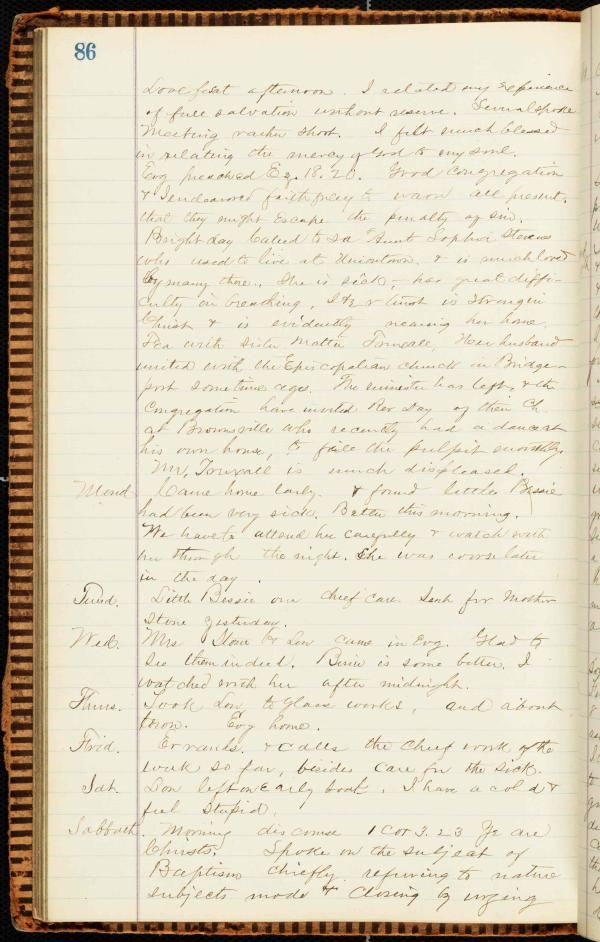 86
Love feast afternoon. I related my experience
of full salvation without reserve. Several spoke
Meeting rather short. I felt much blessed
in relating the mercy of God to my soul.
Evg preached Ez. 18. 20. Good Congregation
& I endeavored faithfully to warn all present,
that they might Escape the penalty of sin.
Bright day Called to see "Aunt Sophia Stevens
who used to live at Uniontown, & is much loved
by many there. She is sick - has great diffi-
culty in breathing, & trust is strong in
Christ & is evidently nearing her home.
Tea with sister Mattie Her husband
united with the Episcopalian church in Bridge-
port some time ago. The minister has left, & the
Congregation have invited Rev Day of their Ch.
at Brownsville who recently had a dance at
his own house, to fill the pulpit monthly.
Mr. is much displeased.
Mond. Came home early & found little Bessie
had been very sick. Better this morning.
We have to attend her carefully & watch with
her through the night. She was worse later
in the day.
Tuesd. Little Bessie our chief care Sent for Mother
Stone yesterday.
Wed. Mrs Stone & Lou came in Evg. Glad to
see them indeed. Bessie is some better. I
watched with her after midnight.
Thurs. Took Lou to Glass works, and about
town. Evg home.
Frid. Errands & calls the chief work of the
week so far, besides care for the sick.
Sat. Lou left on Early boat. I have a cold &
feel stupid.
Sabbath. Morning discourse 1 Cor 3. 23 Ye are
Christs. Spoke on the subject of
Baptism chiefly referring to nature
subjects mode & Closing by urging